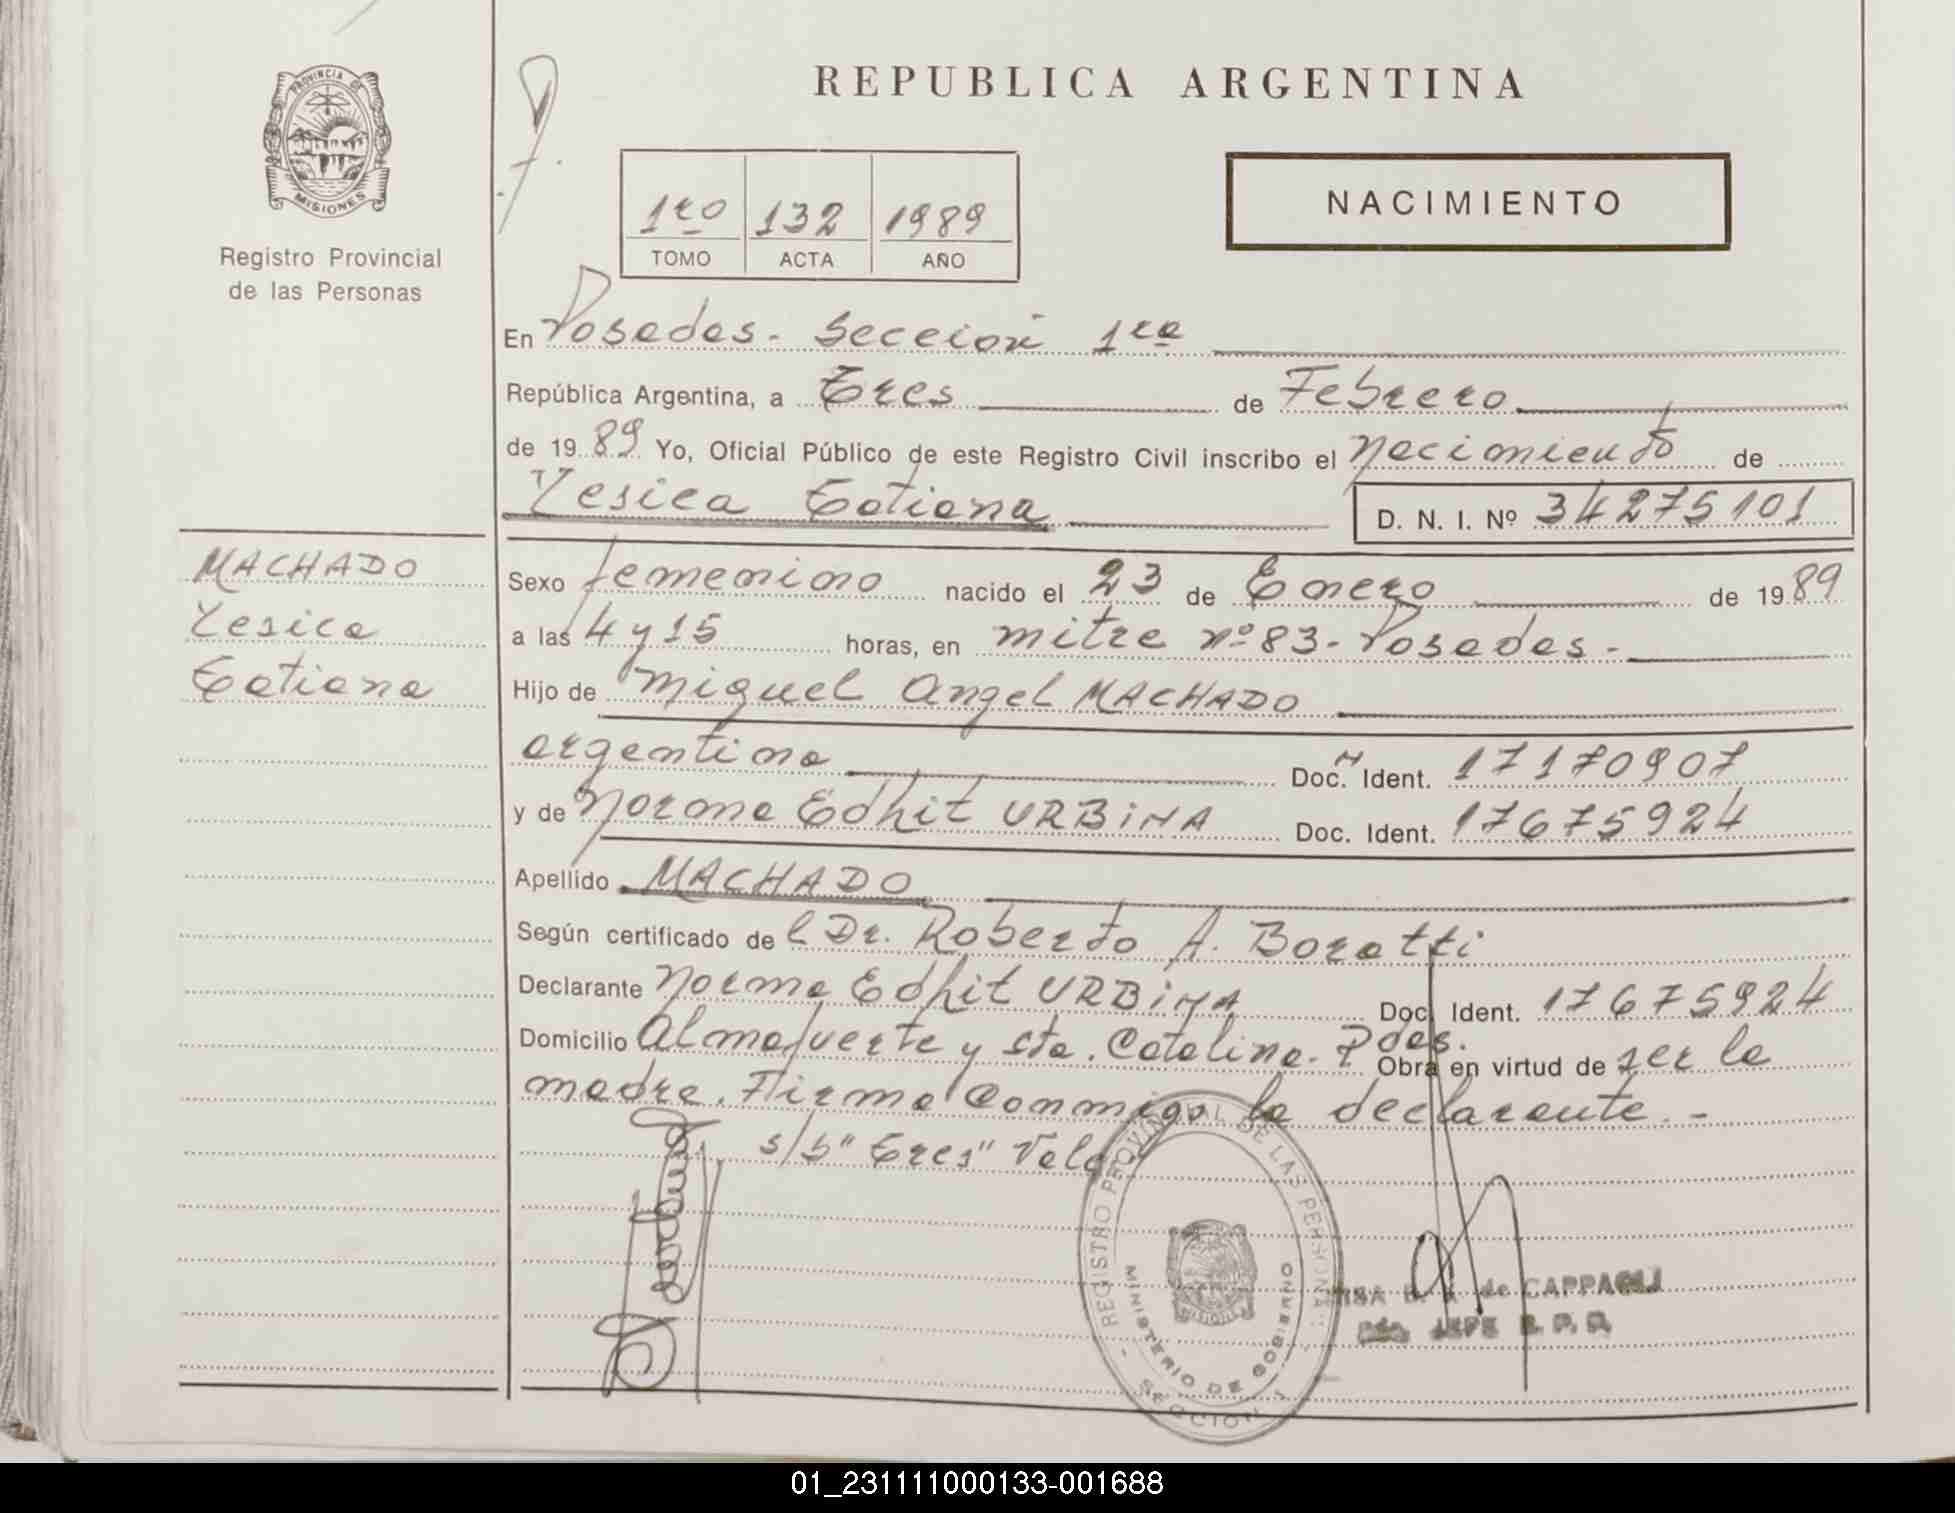 REPUBLICA ARGENTINA
PROVINCIA DE
MISIONES
Registro Provincial
de las Personas
1ro 132 1989
TOMO ACTA AÑO
NACIMIENTO
En Posadas - Sección 1ra
República Argentina, a Tres de Febrero
de 1989 Yo, Oficial Público de este Registro Civil inscribo el Nacimiento de
Yesica Tatiana D. N. I. Nº 34275101
MACHADO
Yesica
Tatiana
Sexo femenino nacido el 23 de Enero de 1989
a las 4 y 15 horas, en mitre nº 83 - Posadas -
Hijo de Miguel Angel MACHADO
argentina Doc. Ident. 17170907
y de Norma Edhit URBINA Doc. Ident. 17675924
Apellido MACHADO
Según certificado de l Dr. Roberto A. Boratti
Declarante Norma Edhit URBINA Doc. Ident. 17675924
Domicilio Almafuerte y Sta. Catalina. Pdas. Obra en virtud de ser la
madre. Firma Conmigo la declarante. -
s/b "Tres" Vale
REGISTRO PROVINCIAL DE LAS PERSONAS
MINISTERIO DE GOBIERNO
SECCION 1
de CAPPAGLI
JEFE R. P. P.
01_231111000133-001688